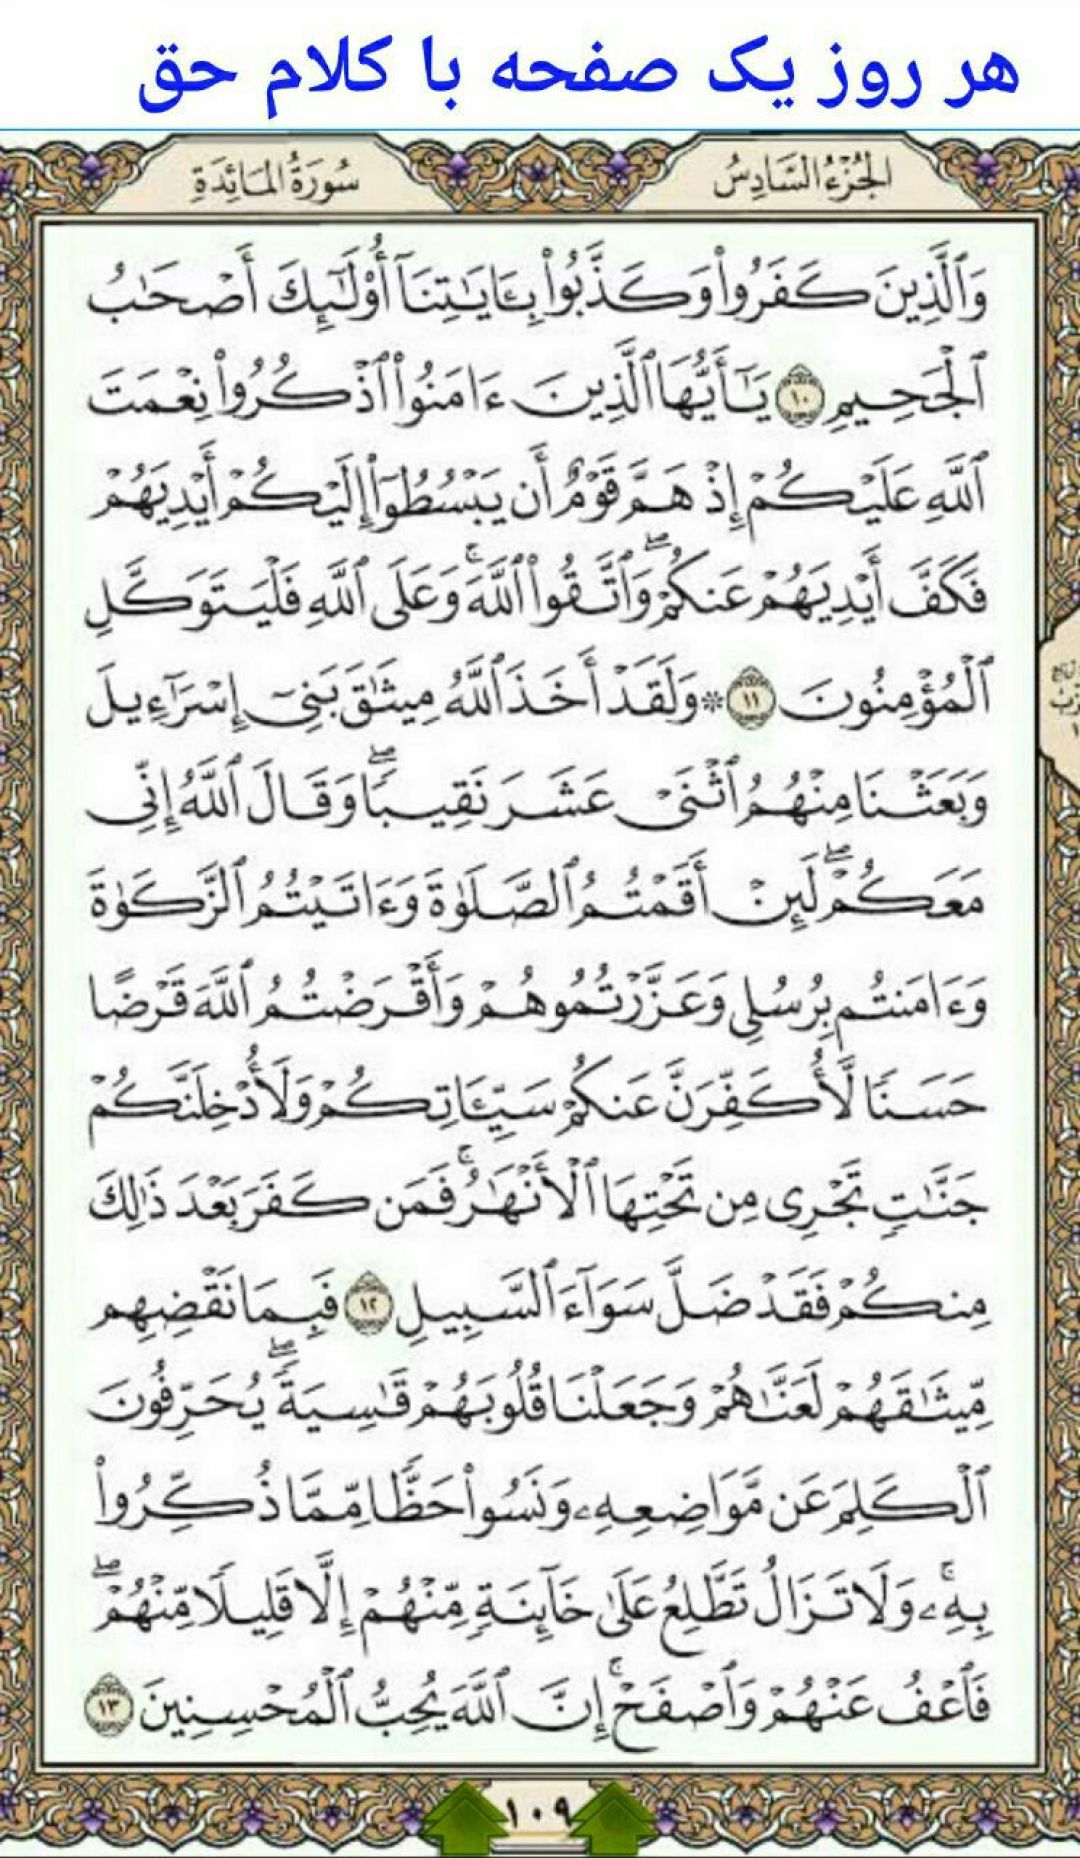 هر روز یک صفحه با کلام حق
الجُزْءُ السَّادِسُ
سُورَةُ المَائِدَةِ
وَٱلَّذِينَ كَفَرُواْ وَكَذَّبُواْ بِـَٔايَـٰتِنَآ أُوْلَـٰٓئِكَ أَصْحَـٰبُ
ٱلْجَحِيمِ ١٠ يَـٰٓأَيُّهَا ٱلَّذِينَ ءَامَنُواْ ٱذْكُرُواْ نِعْمَتَ
ٱللَّهِ عَلَيْكُمْ إِذْ هَمَّ قَوْمٌ أَن يَبْسُطُوٓاْ إِلَيْكُمْ أَيْدِيَهُمْ
فَكَفَّ أَيْدِيَهُمْ عَنكُمْ ۖ وَٱتَّقُواْ ٱللَّهَ ۚ وَعَلَى ٱللَّهِ فَلْيَتَوَكَّلِ
ٱلْمُؤْمِنُونَ ١١ * وَلَقَدْ أَخَذَ ٱللَّهُ مِيثَـٰقَ بَنِىٓ إِسْرَٰٓءِيلَ
وَبَعَثْنَا مِنْهُمُ ٱثْنَىْ عَشَرَ نَقِيبًا ۖ وَقَالَ ٱللَّهُ إِنِّى
مَعَكُمْ ۖ لَئِنْ أَقَمْتُمُ ٱلصَّلَوٰةَ وَءَاتَيْتُمُ ٱلزَّكَوٰةَ
وَءَامَنتُم بِرُسُلِى وَعَزَّرْتُمُوهُمْ وَأَقْرَضْتُمُ ٱللَّهَ قَرْضًا
حَسَنًا لَّأُكَفِّرَنَّ عَنكُمْ سَيِّـَٔاتِكُمْ وَلَأُدْخِلَنَّكُمْ
جَنَّـٰتٍ تَجْرِى مِن تَحْتِهَا ٱلْأَنْهَـٰرُ ۚ فَمَن كَفَرَ بَعْدَ ذَٰلِكَ
مِنكُمْ فَقَدْ ضَلَّ سَوَآءَ ٱلسَّبِيلِ ١٢ فَبِمَا نَقْضِهِم
مِّيثَـٰقَهُمْ لَعَنَّـٰهُمْ وَجَعَلْنَا قُلُوبَهُمْ قَـٰسِيَةً ۖ يُحَرِّفُونَ
ٱلْكَلِمَ عَن مَّوَاضِعِهِۦ وَنَسُواْ حَظًّا مِّمَّا ذُكِّرُواْ
بِهِۦ ۚ وَلَا تَزَالُ تَطَّلِعُ عَلَىٰ خَآئِنَةٍ مِّنْهُمْ إِلَّا قَلِيلًا مِّنْهُمْ ۖ
فَٱعْفُ عَنْهُمْ وَٱصْفَحْ ۚ إِنَّ ٱللَّهَ يُحِبُّ ٱلْمُحْسِنِينَ ١٣
١٠٩